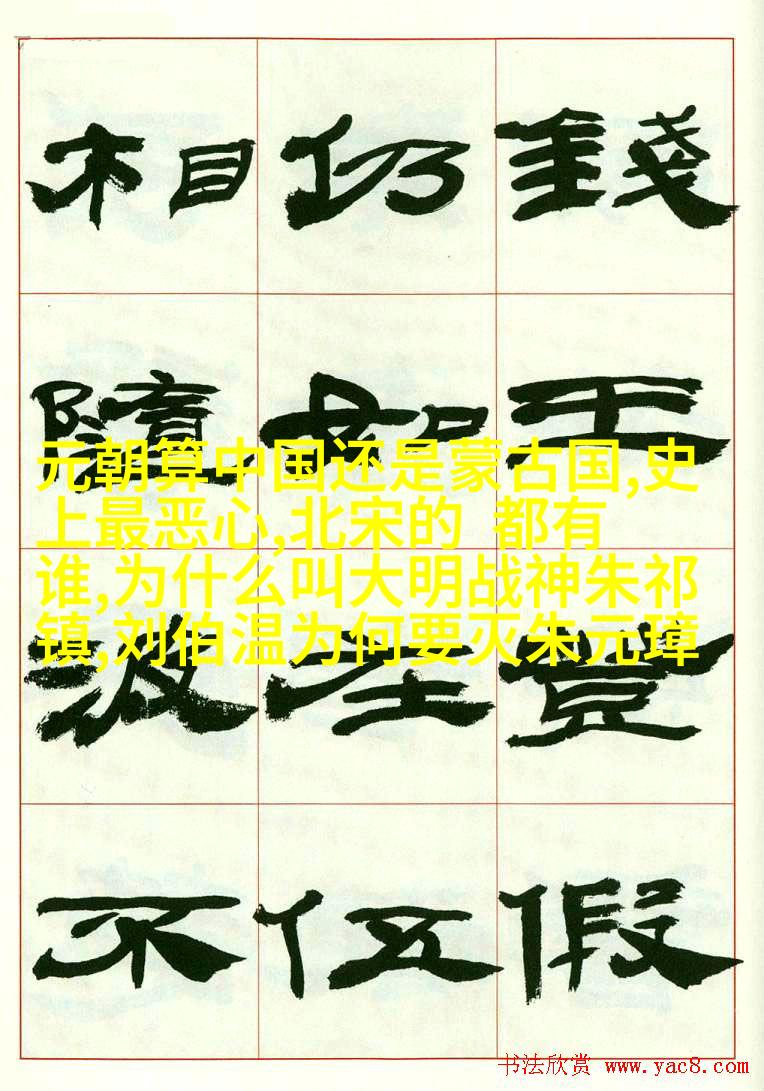 錢王假
仍左伍
相隨波不
元朝算中国还是蒙古国,史
上最恶心,北宋的 都有
谁,为什么叫大明战神朱祁
镇,刘伯温为何要灭朱元璋
书法欣赏 www.yac8.com